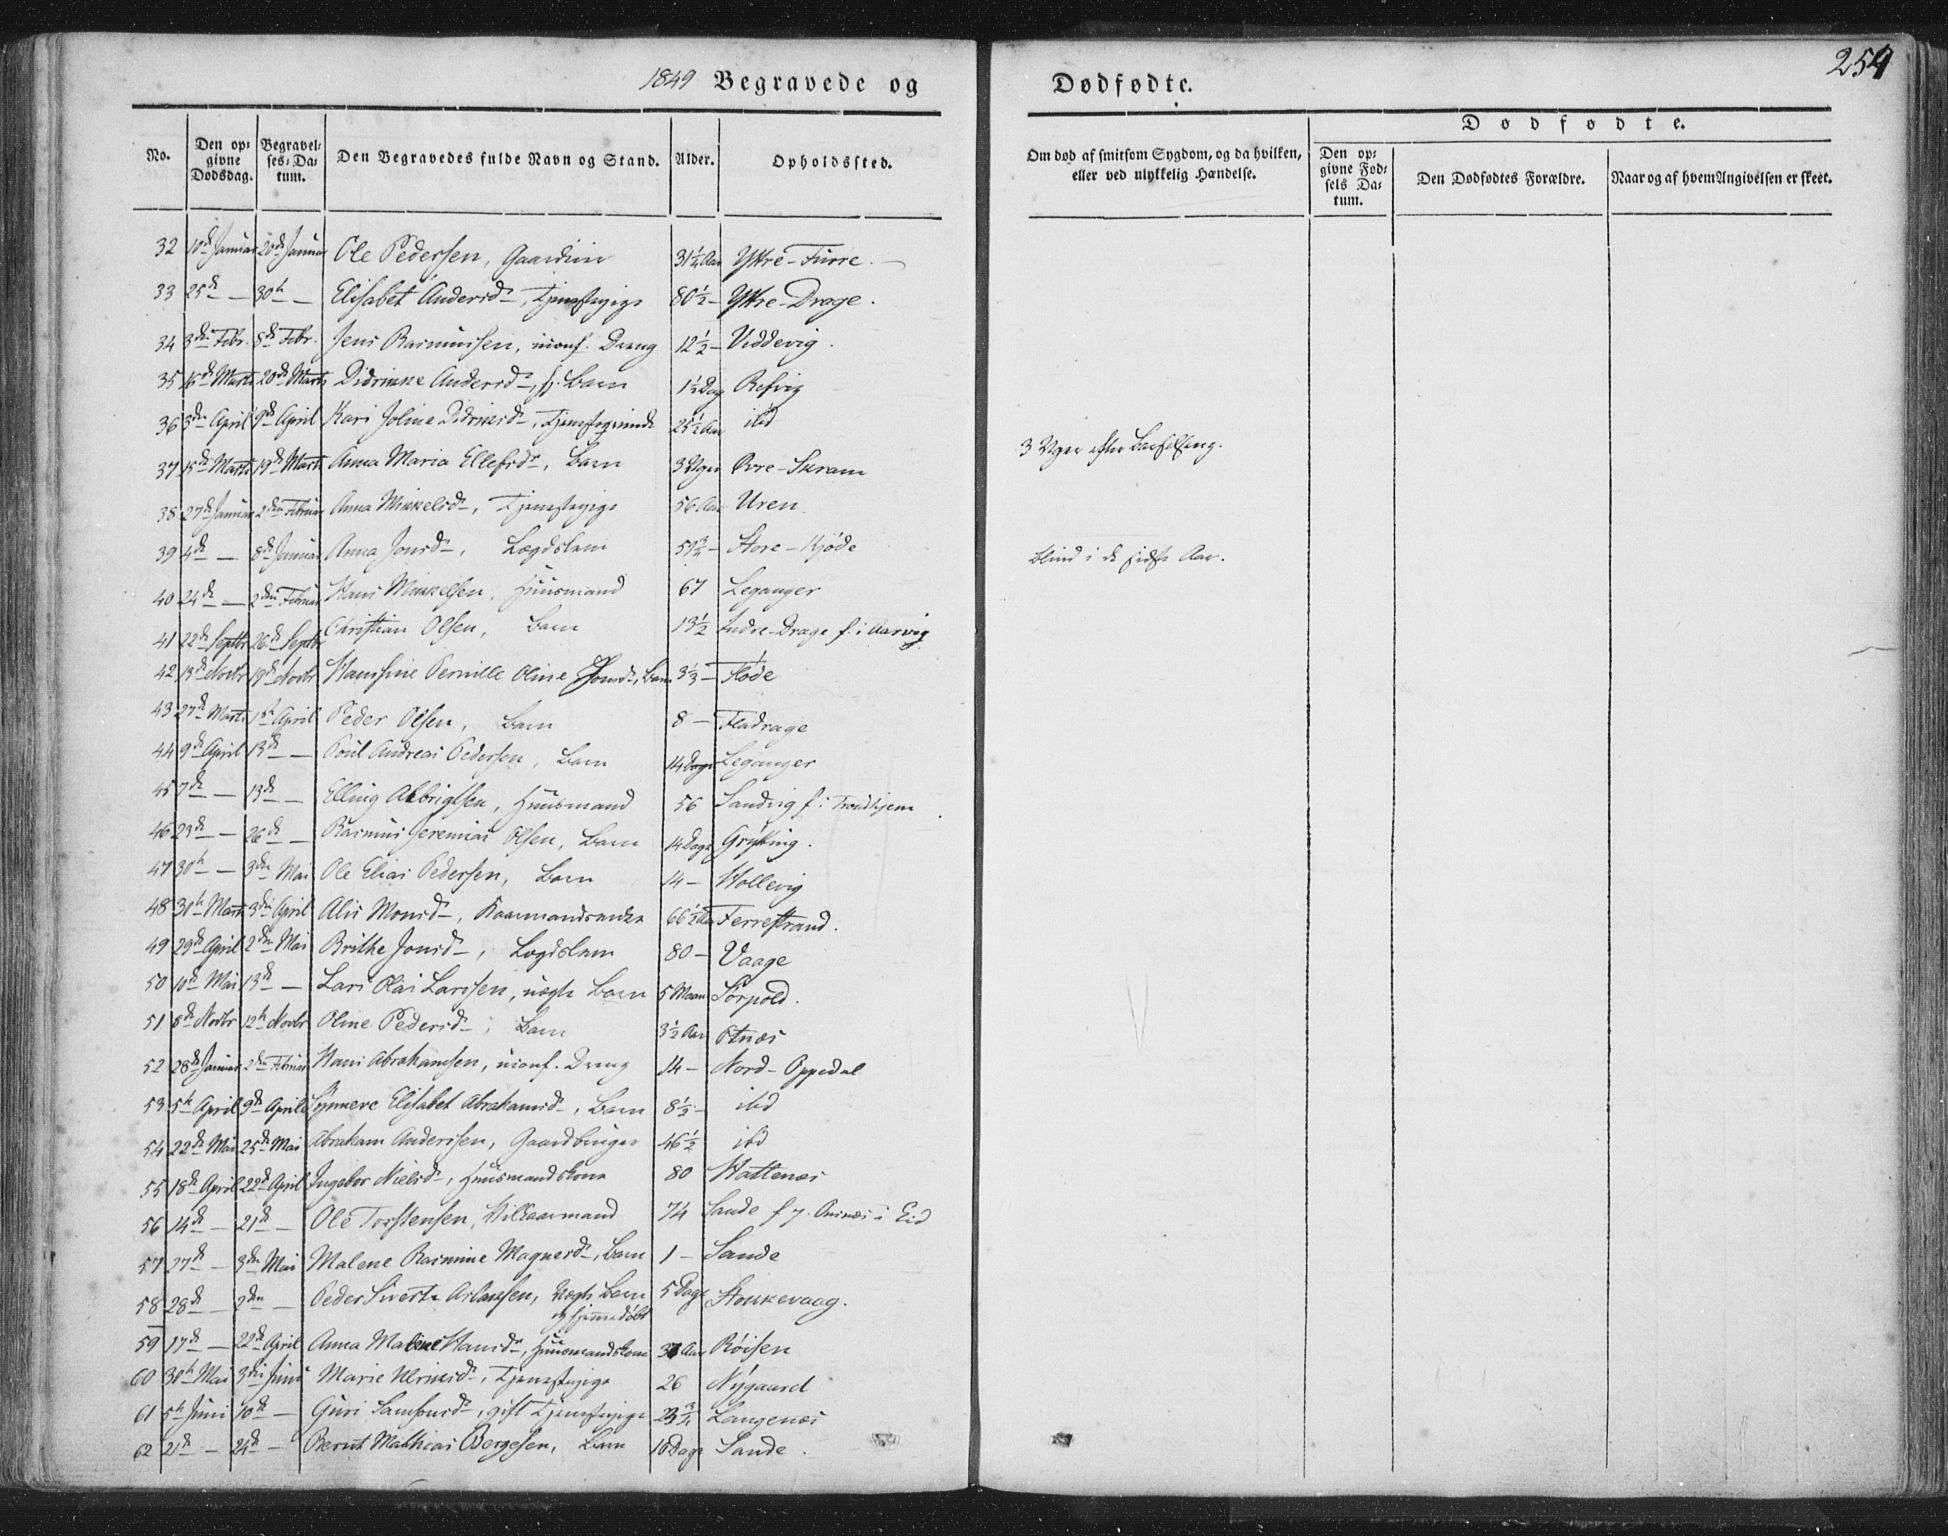 254
1849 Begravede og Dødfødte.
No. Den opgivne Dødsdag. Begravelses-Datum. Den Begravedes fulde Navn og Stand. Alder. Opholdssted. Om død af smitsom Sygdom, og da hvilken, eller ved ulykkelig Hændelse. Dødfødte.
Den opgivne Fødsels Datum. Den Dødfødtes Forældre. Naar og af hvem Angivelsen er skeet.
32 10de Januar 20de Januar Ole Pedersen, 31 1/4 Aar Yttre-Furre. -
33 25de - 30te - Elisabet Andersdr, Tjenestepige 80 1/2 - Yttre-Drage.
34 3die Febr. 8de Febr. Jens Rasmussen, uconf. Dreng 12 1/2 - Viddevig.
35 16de Marts 20de Marts Didrikke Andersdr, hj. Barn 1 1/2 Dag Refvig
36 3die April 9de April Kari Joline Didriksdr, 25 1/2 Aar ibid 3 Uger efter Barselseng.
37 15de Marts 19de Marts Anna Maria Ellefsdr, Barn 3 Uger Øvre-Skram
38 27de Januar 2den Februar Anna Mikkelsdr, Tjenestepige 56 Aar Uren
39 4de - 8de Januar Anna Jonsdr, Lægdslem - Store-Kjøde blind i de sidste Aar.
40 24de - 2den Februar Hans Mikkelsen, Huusmand 67 Leganger
41 22de Septbr 26de Septbr Christian Olsen, Barn 13 1/2 Indre-Drage f. i Aarvig
42 13de Novbr 19de Novbr Hansine Pernille Oline Jonsdr, Barn 3 1/3 - Fløde
43 27de Marts 1ste April Peder Olsen, Barn 8 - Fladrage
44 9de April 13de - Poul Andreas Pedersen, Barn 14 Dage Leganger
45 7de - 13de - Elling Albrigtsen, Huusmand 56 Sandvig f. i Trondhjem
46 23de - 26de - Rasmus Jeremias Olsen, Barn 14 Dage Grytting.
47 30te - 3die Mai Ole Elias Pedersen, Barn 14 - Hollevig
48 30te Marts 3die April Alis Monsdr, Kaarmandsenke 66 1/2 Aar Ferrestrand.
49 29de April 2den Mai Brithe Jonsdr, Lægdslem 80 - Vaage
50 10de Mai 13de - Lars Olai Larssen, uægte Barn 5 Maan Sørpold.
51 8de Novbr 12te Novbr Oline Pedersdr, Barn 3 1/2 Aar Otnæs
52 28de Januar 2den Februar Hans Abrahamsen, uconf. Dreng 14 - Nord-Oppedal
53 5te April 9de April Synneve Elisabet Abrahamsdr, Barn 8 1/2 - ibid
54 22de Mai 25de Mai Abraham Anderssen, Gaardbruger 46 1/2 ibd
55 18de April 22de April Ingebor Nielsdr, Huusmandskone 80 Hattenes
56 14de - 21de - Ole Torstensen, Vilkaarmand 74 Sande f. i Eid
57 27de - 3die Mai Malene Rasmine Magnesdr, Barn 1 - Sande
58 28de - 2den - Peder Sivert Aslaksen, uægte Barn og hjemmedøbt 5 Dage Stokkevaag.
59 17de - 22de April Anna Malene Hansdr, Huusmandskone Aar Røisen
60 30te Mai 3die Juni Marie Tjenestepige 26 Nygaard
61 5te Juni 10de - Guri Samsonsdr, gift Tjenestepige Langenæs
62 21de - 24de - Bernt Mathias Børgesen, Barn 10 Dage Sande.